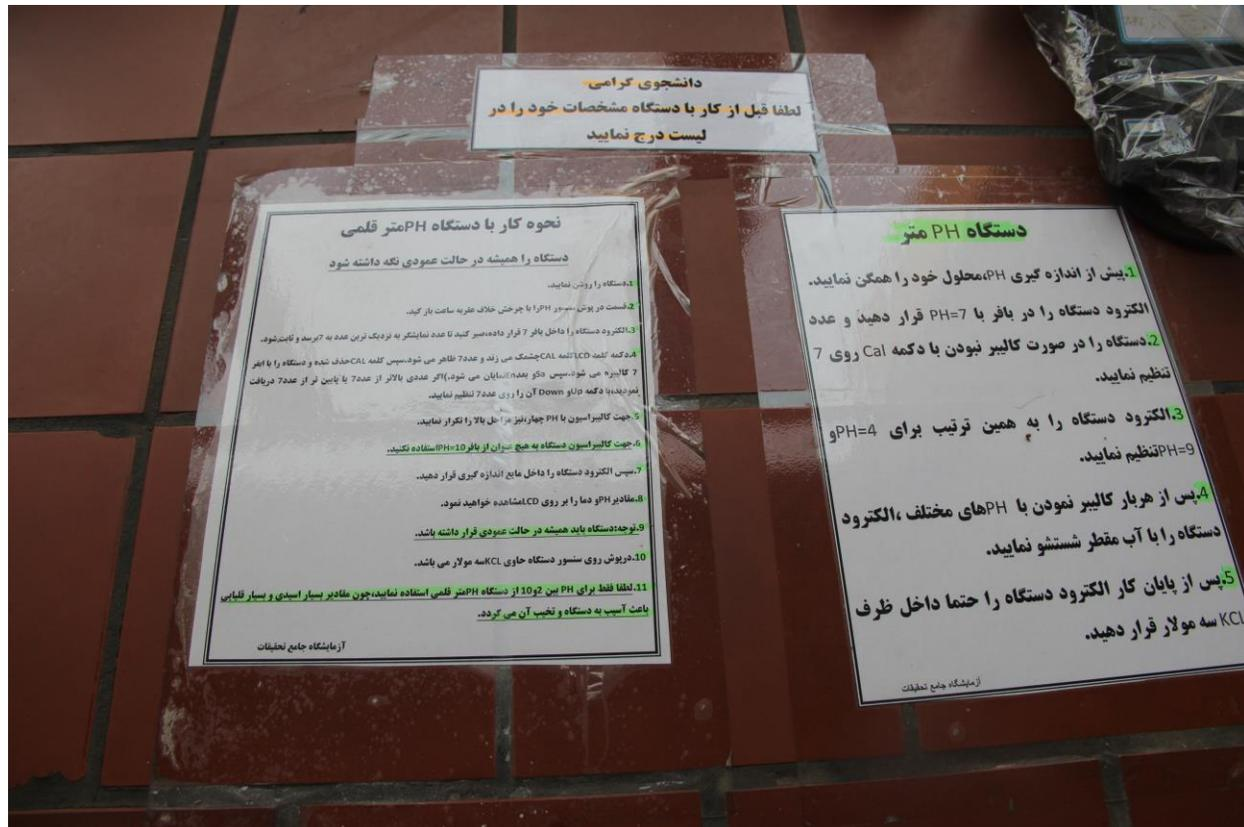 دانشجوی گرامی
لطفا قبل از کار با دستگاه مشخصات خود را در
لیست درج نمایید
نحوه کار با دستگاه PHمتر قلمی
دستگاه را همیشه در حالت عمودی نگه داشته شود
1.دستگاه را روشن نمایید.
2.قسمت در پوش سنسور PHرا با چرخش خلاف عقربه ساعت باز کنید.
3.الکترود دستگاه را داخل بافر 7 قرار داده،صبر کنید تا عدد نمایشگر به نزدیک ترین عدد به 7برسد و ثابت شود.
4.دکمه کلمه LCDکلمه CALچشمک می زند و عدد7 ظاهر می شود،سپس کلمه CALحذف شده و دستگاه را با
7 کالیبره می شود.سپس Saو بعدEnنمایان می شود.)اگر عددی بالاتر از عدد7 یا پایین تر از عدد7 دریافت
نمودید،با دکمه Upو Down آن را روی عدد7 تنظیم نمایید.
5.جهت کالیبراسیون با PH چهار،نیز مراحل بالا را تکرار نمایید.
6.جهت کالیبراسیون دستگاه به هیچ عنوان از بافر PH=10استفاده نکنید.
7.سپس الکترود دستگاه را داخل مایع اندازه گیری قرار دهید.
8.مقادیر PHو دما را بر روی LCDمشاهده خواهید نمود.
9.توجه:دستگاه باید همیشه در حالت عمودی قرار داشته باشد.
10.درپوش روی سنسور دستگاه حاوی KCLسه مولار می باشد.
11.لطفا فقط برای PH بین 2و10 از دستگاه PHمتر قلمی استفاده نمایید،چون مقادیر بسیار اسیدی و بسیار قلیایی
باعث آسیب به دستگاه و تخیب آن می گردد.
آزمایشگاه جامع تحقیقات
دستگاه PH متر
1.پیش از اندازه گیری PH،محلول خود را همگن نمایید.
الکترود دستگاه را در بافر با PH=7 قرار دهید و عدد
2.دستگاه را در صورت کالیبر نبودن با دکمه Cal روی 7
تنظیم نمایید.
3.الکترود دستگاه را به همین ترتیب برای PH=4و
PH=9تنظیم نمایید.
4.پس از هربار کالیبر نمودن با PHهای مختلف ،الکترود
دستگاه را با آب مقطر شستشو نمایید.
5.پس از پایان کار الکترود دستگاه را حتما داخل ظرف
KCL سه مولار قرار دهید.
آزمایشگاه جامع تحقیقات